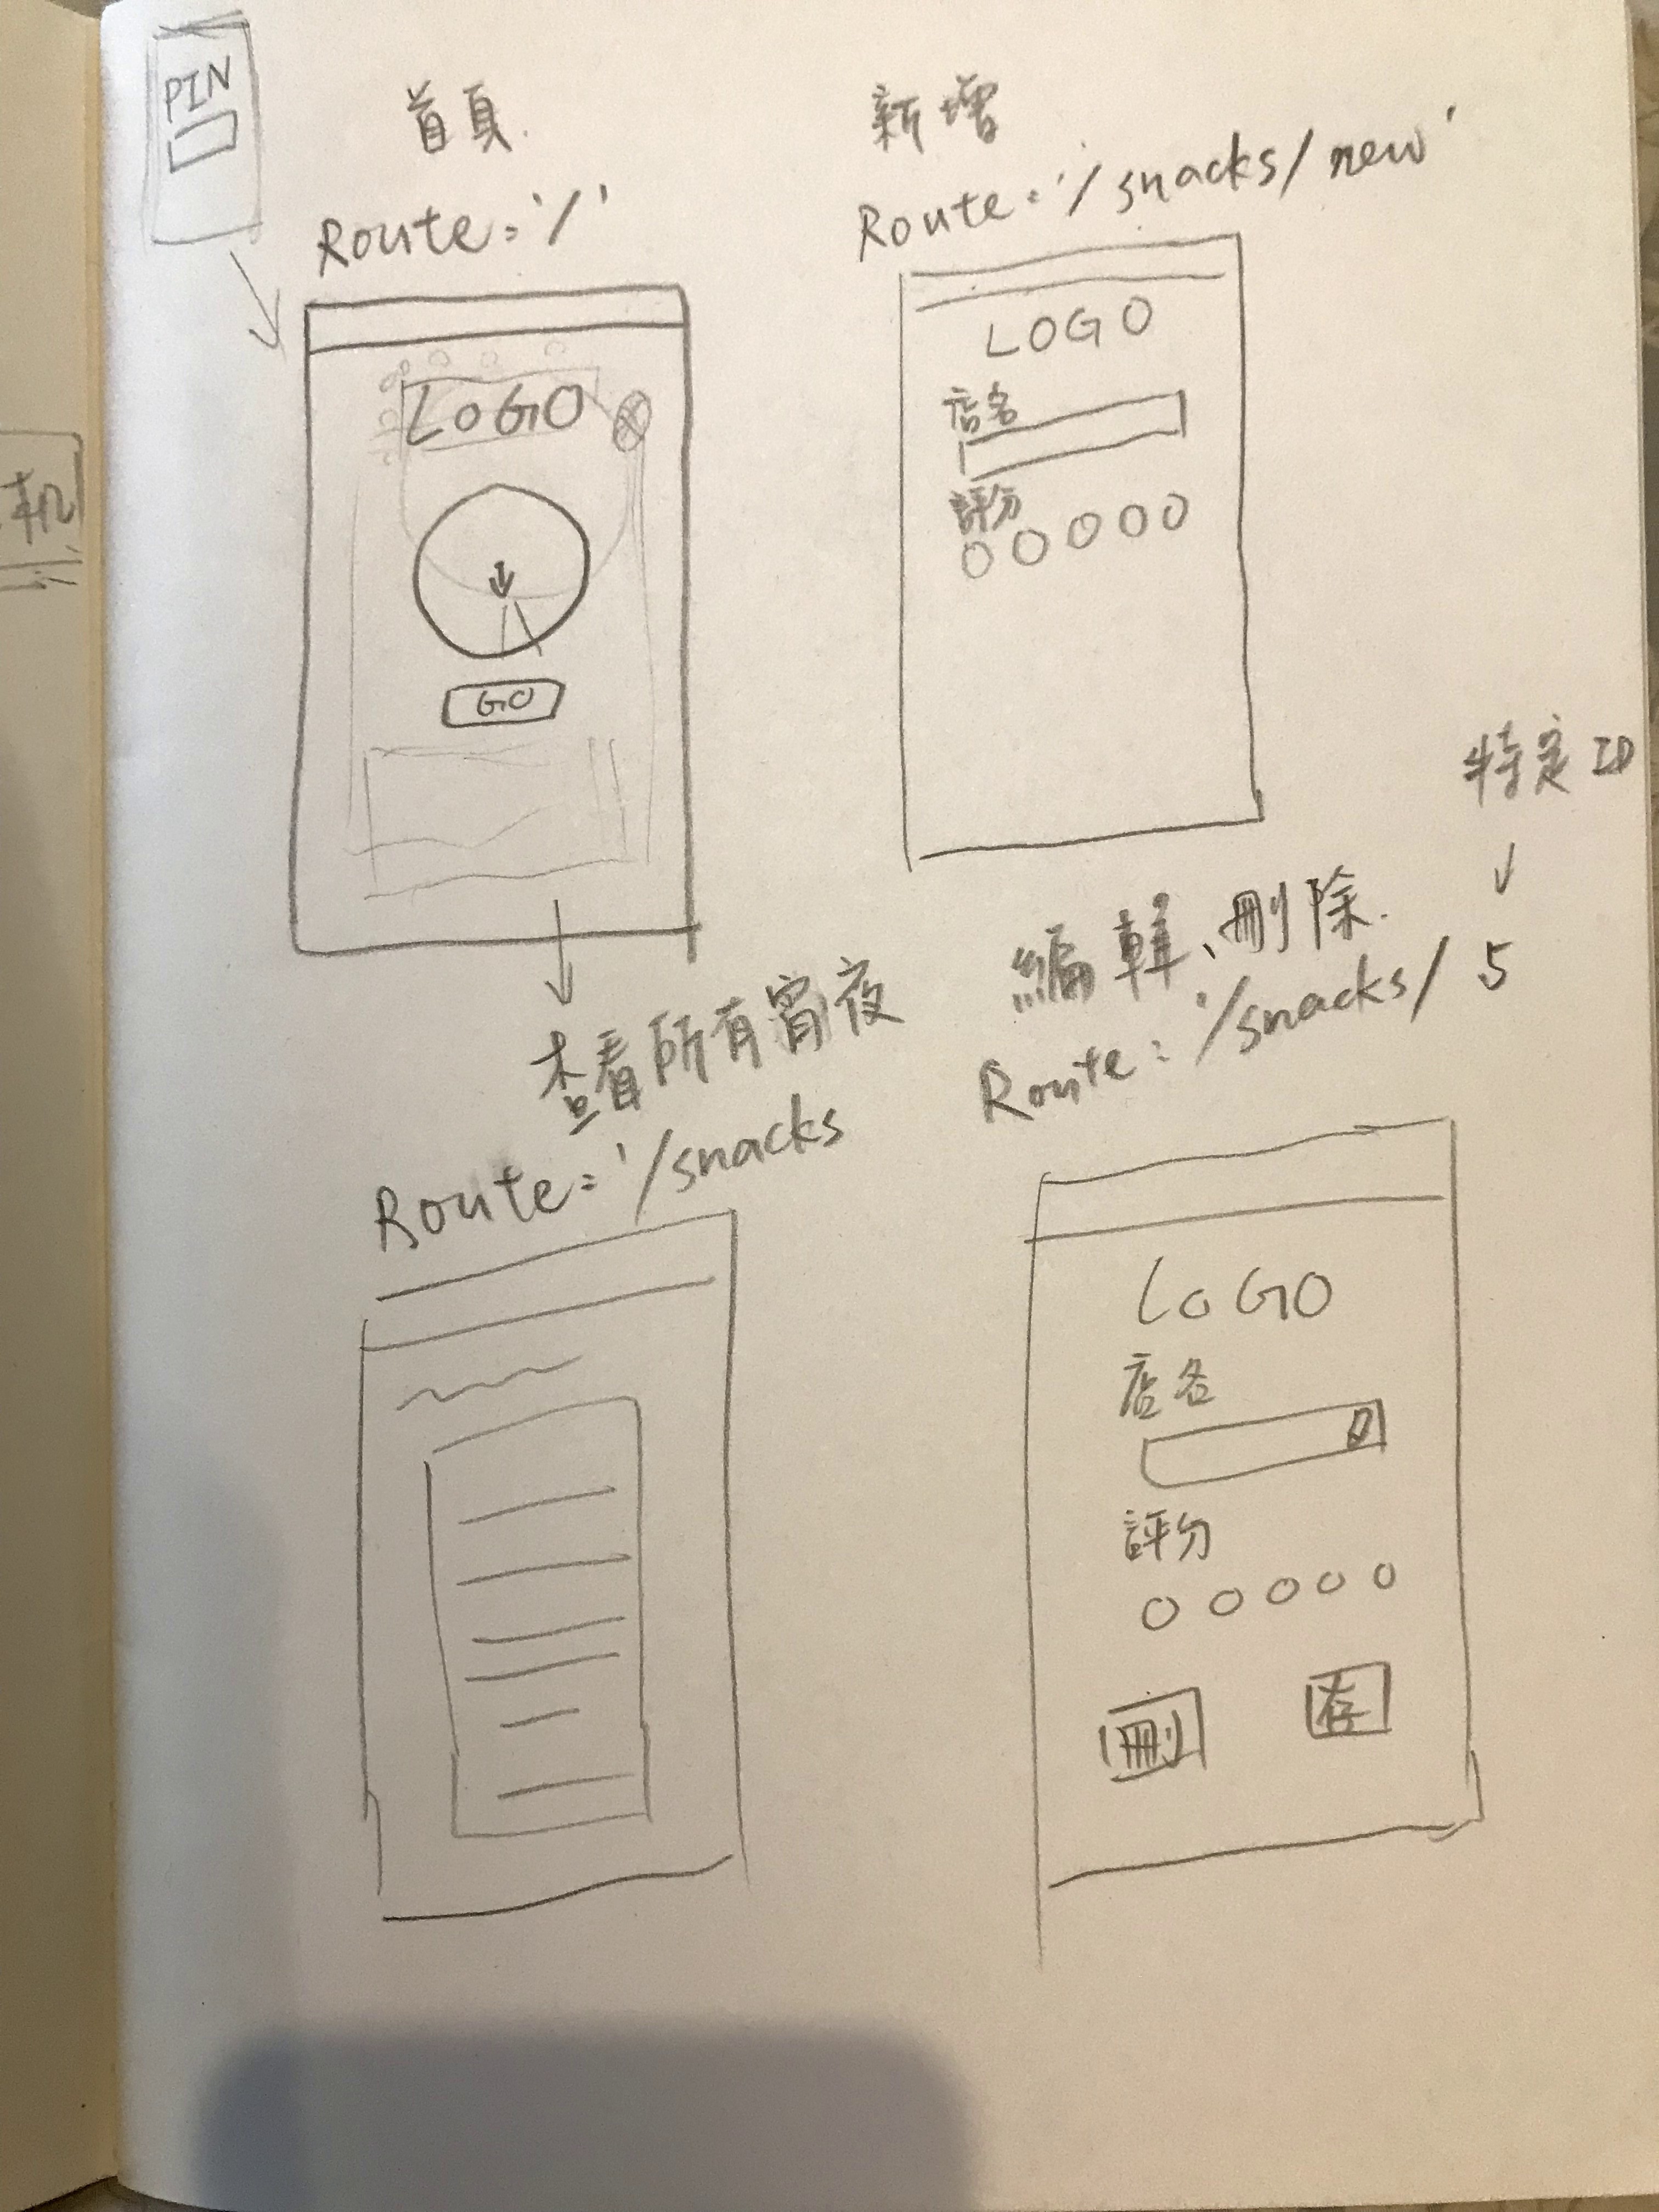 PIN
首頁.
Route='/'
LOGO
GO
新增
Route='/snacks/new'
LOGO
店名
評分
查看所有宵夜
Route='/snacks
特定ID
編輯、刪除.
Route='/snacks/5
LOGO
店名
評分
刪
存